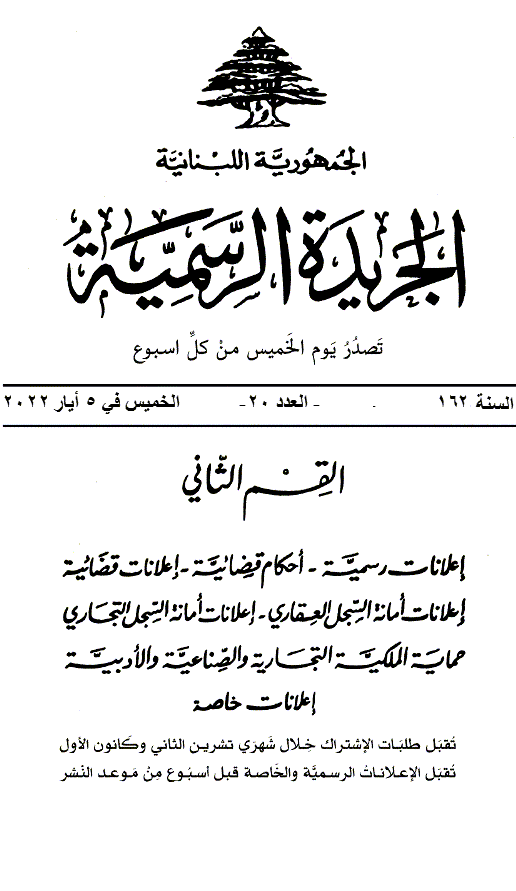 الجمهورية اللبنانية
الجريدة الرسمية
تَصدُرُ يَوم الخَميس منْ كلِّ اسبوع
السنة ١٦٢ - العدد ٢٠ - الخميس في ٥ أيار ٢٠٢٢
القِسْم الثّاني
إعلانات رسميَّة - أحكام قضائيَّة - إعلانات قضائية
إعلانات أمانة السّجل العقاري - إعلانات أمانة السّجل التجاري
حماية الملكيَّة التجارية والصِّناعيَّة والأدبيَّة
إعلانات خاصة
تُقبَل طلبَات الإشتراك خِلال شَهرَي تشرين الثاني وكَانون الأول
تُقبَل الإعلاناتُ الرسميَّة والخَاصة قبل أسبُوع مِنْ مَوعد النَشر